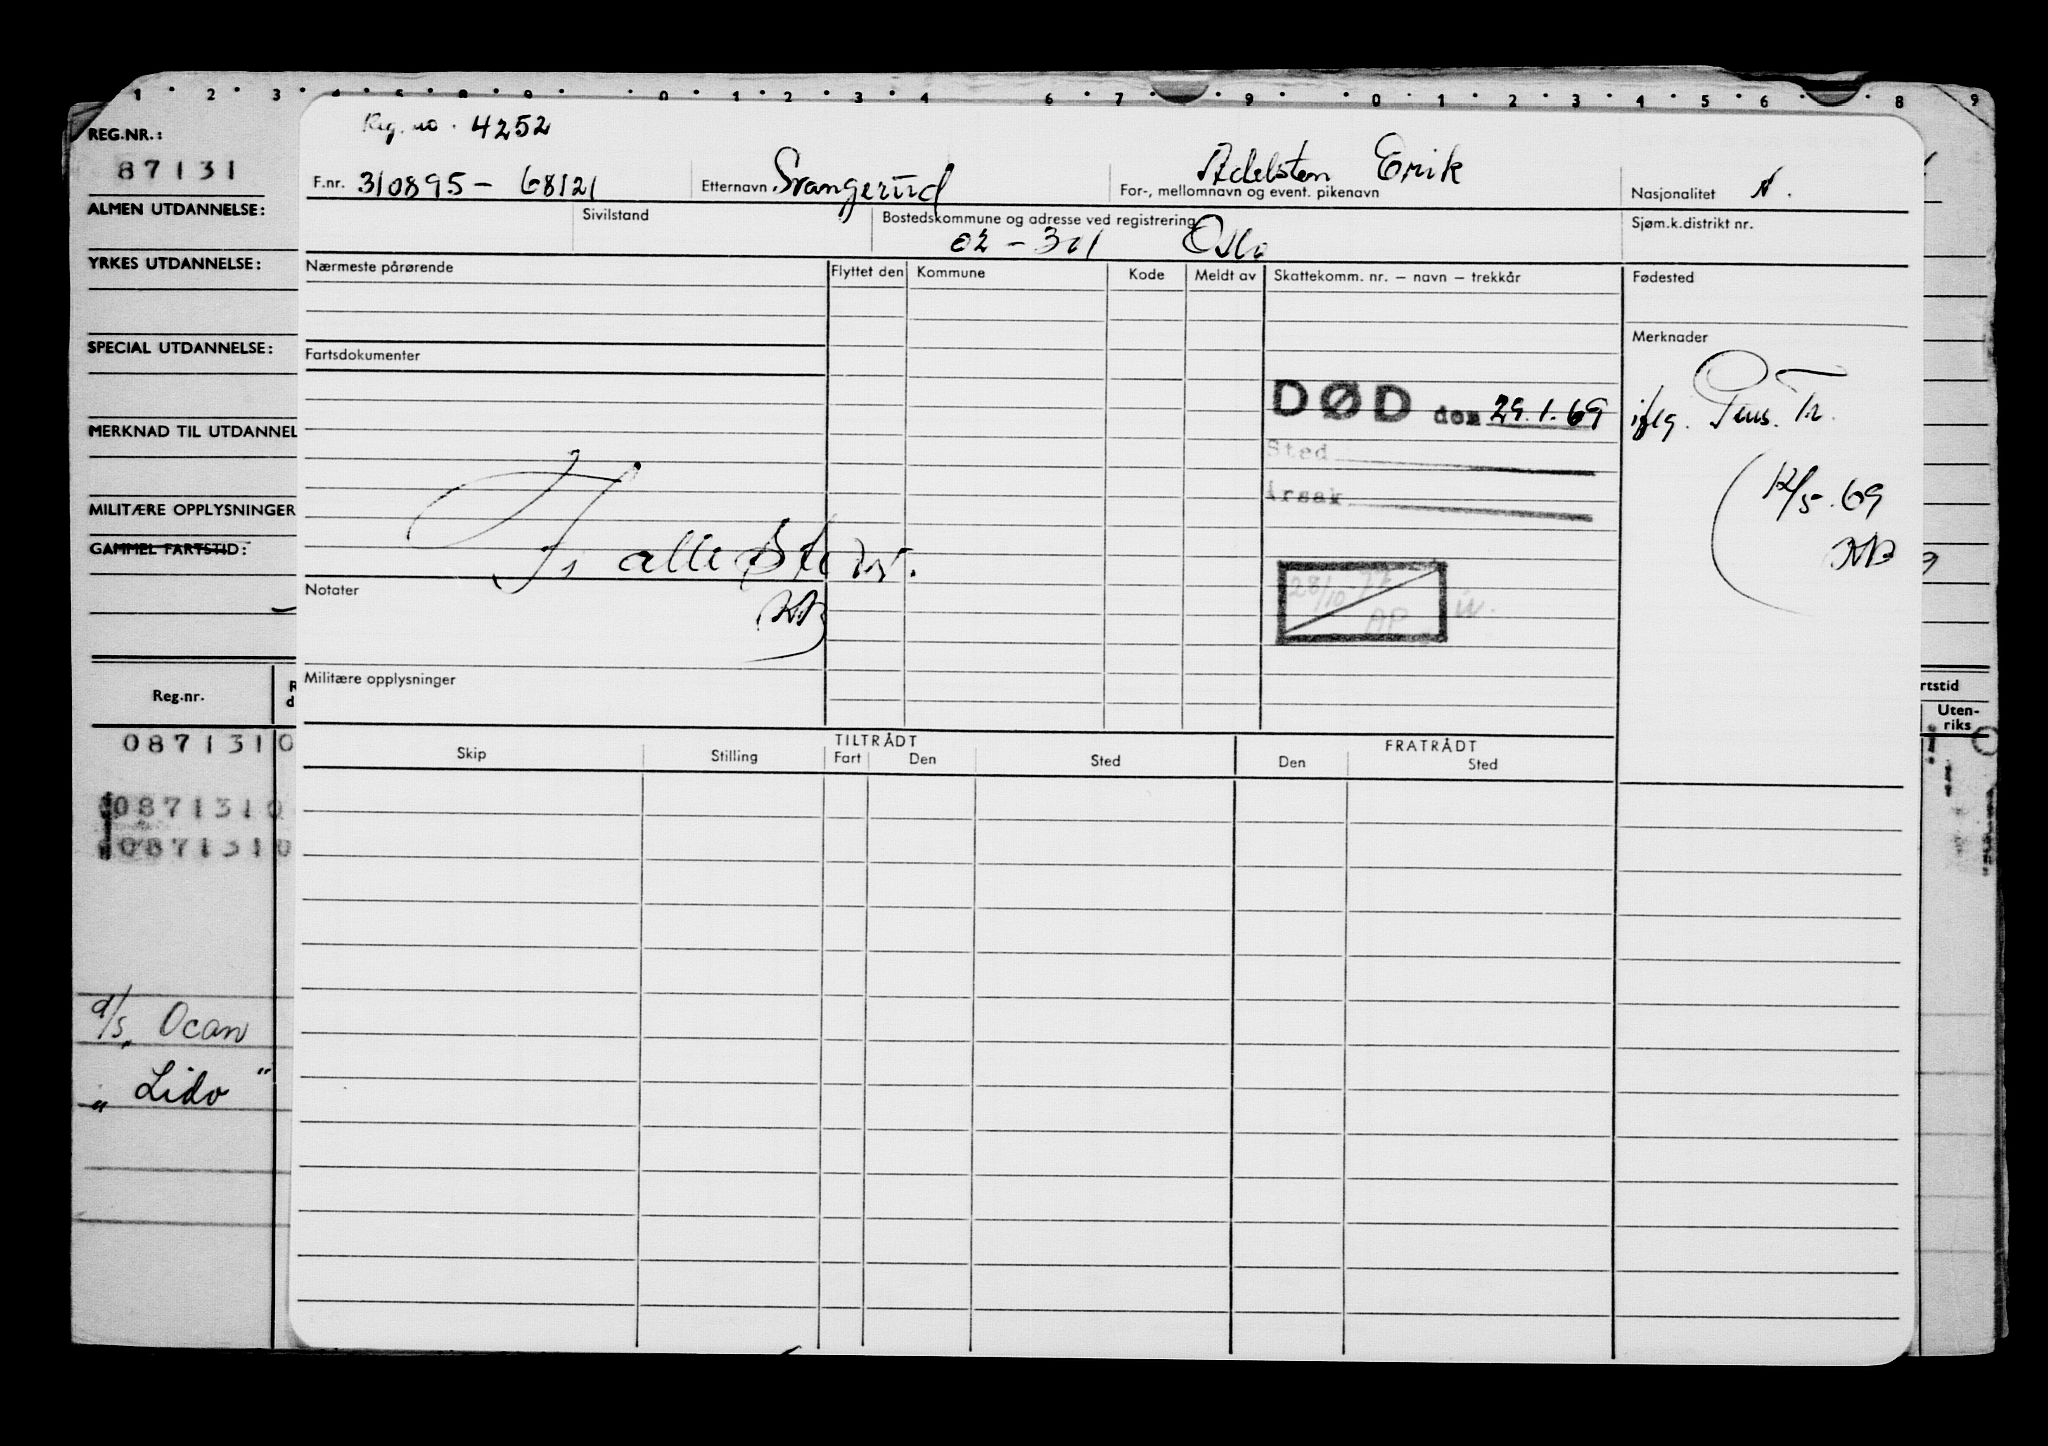 1 2 3 4 5 8 9 0 1 2 3 4 6 7 9 0 1 2 3 4 5 6 8 9
REG.NR.:
87131
ALMEN UTDANNELSE:
YRKES UTDANNELSE:
SPECIAL UTDANNELSE:
MERKNAD TIL UTDANNEL
MILITÆRE OPPLYSNINGER
GAMMEL FARTSTID:
Reg.nr.
0871310
0871310
0871310
Ocan
" Lido "
Reg. no. 4252
F.nr. 310895 - 68121 Etternavn Svangerud Adelsten Erik
For-, mellomnavn og event. pikenavn
Nasjonalitet N.
Sivilstand Bostedskommune og adresse ved registrering Sjøm.k.distrikt nr.
02 - 301 Oslo
Nærmeste pårørende Flyttet den Kommune Kode Meldt av Skattekomm. nr. – navn – trekkår Fødested
Merknader
Fartsdokumenter
DØD den 29.1.69 iflg. Pens. Tr.
Sted
Årsak
12/5.69
KB
alle
28/10
AP
Notater
KB
Militære opplysninger
TILTRÅDT FRATRÅDT
Skip Stilling Fart Den Sted Den Sted
rtstid
Uten-
riks